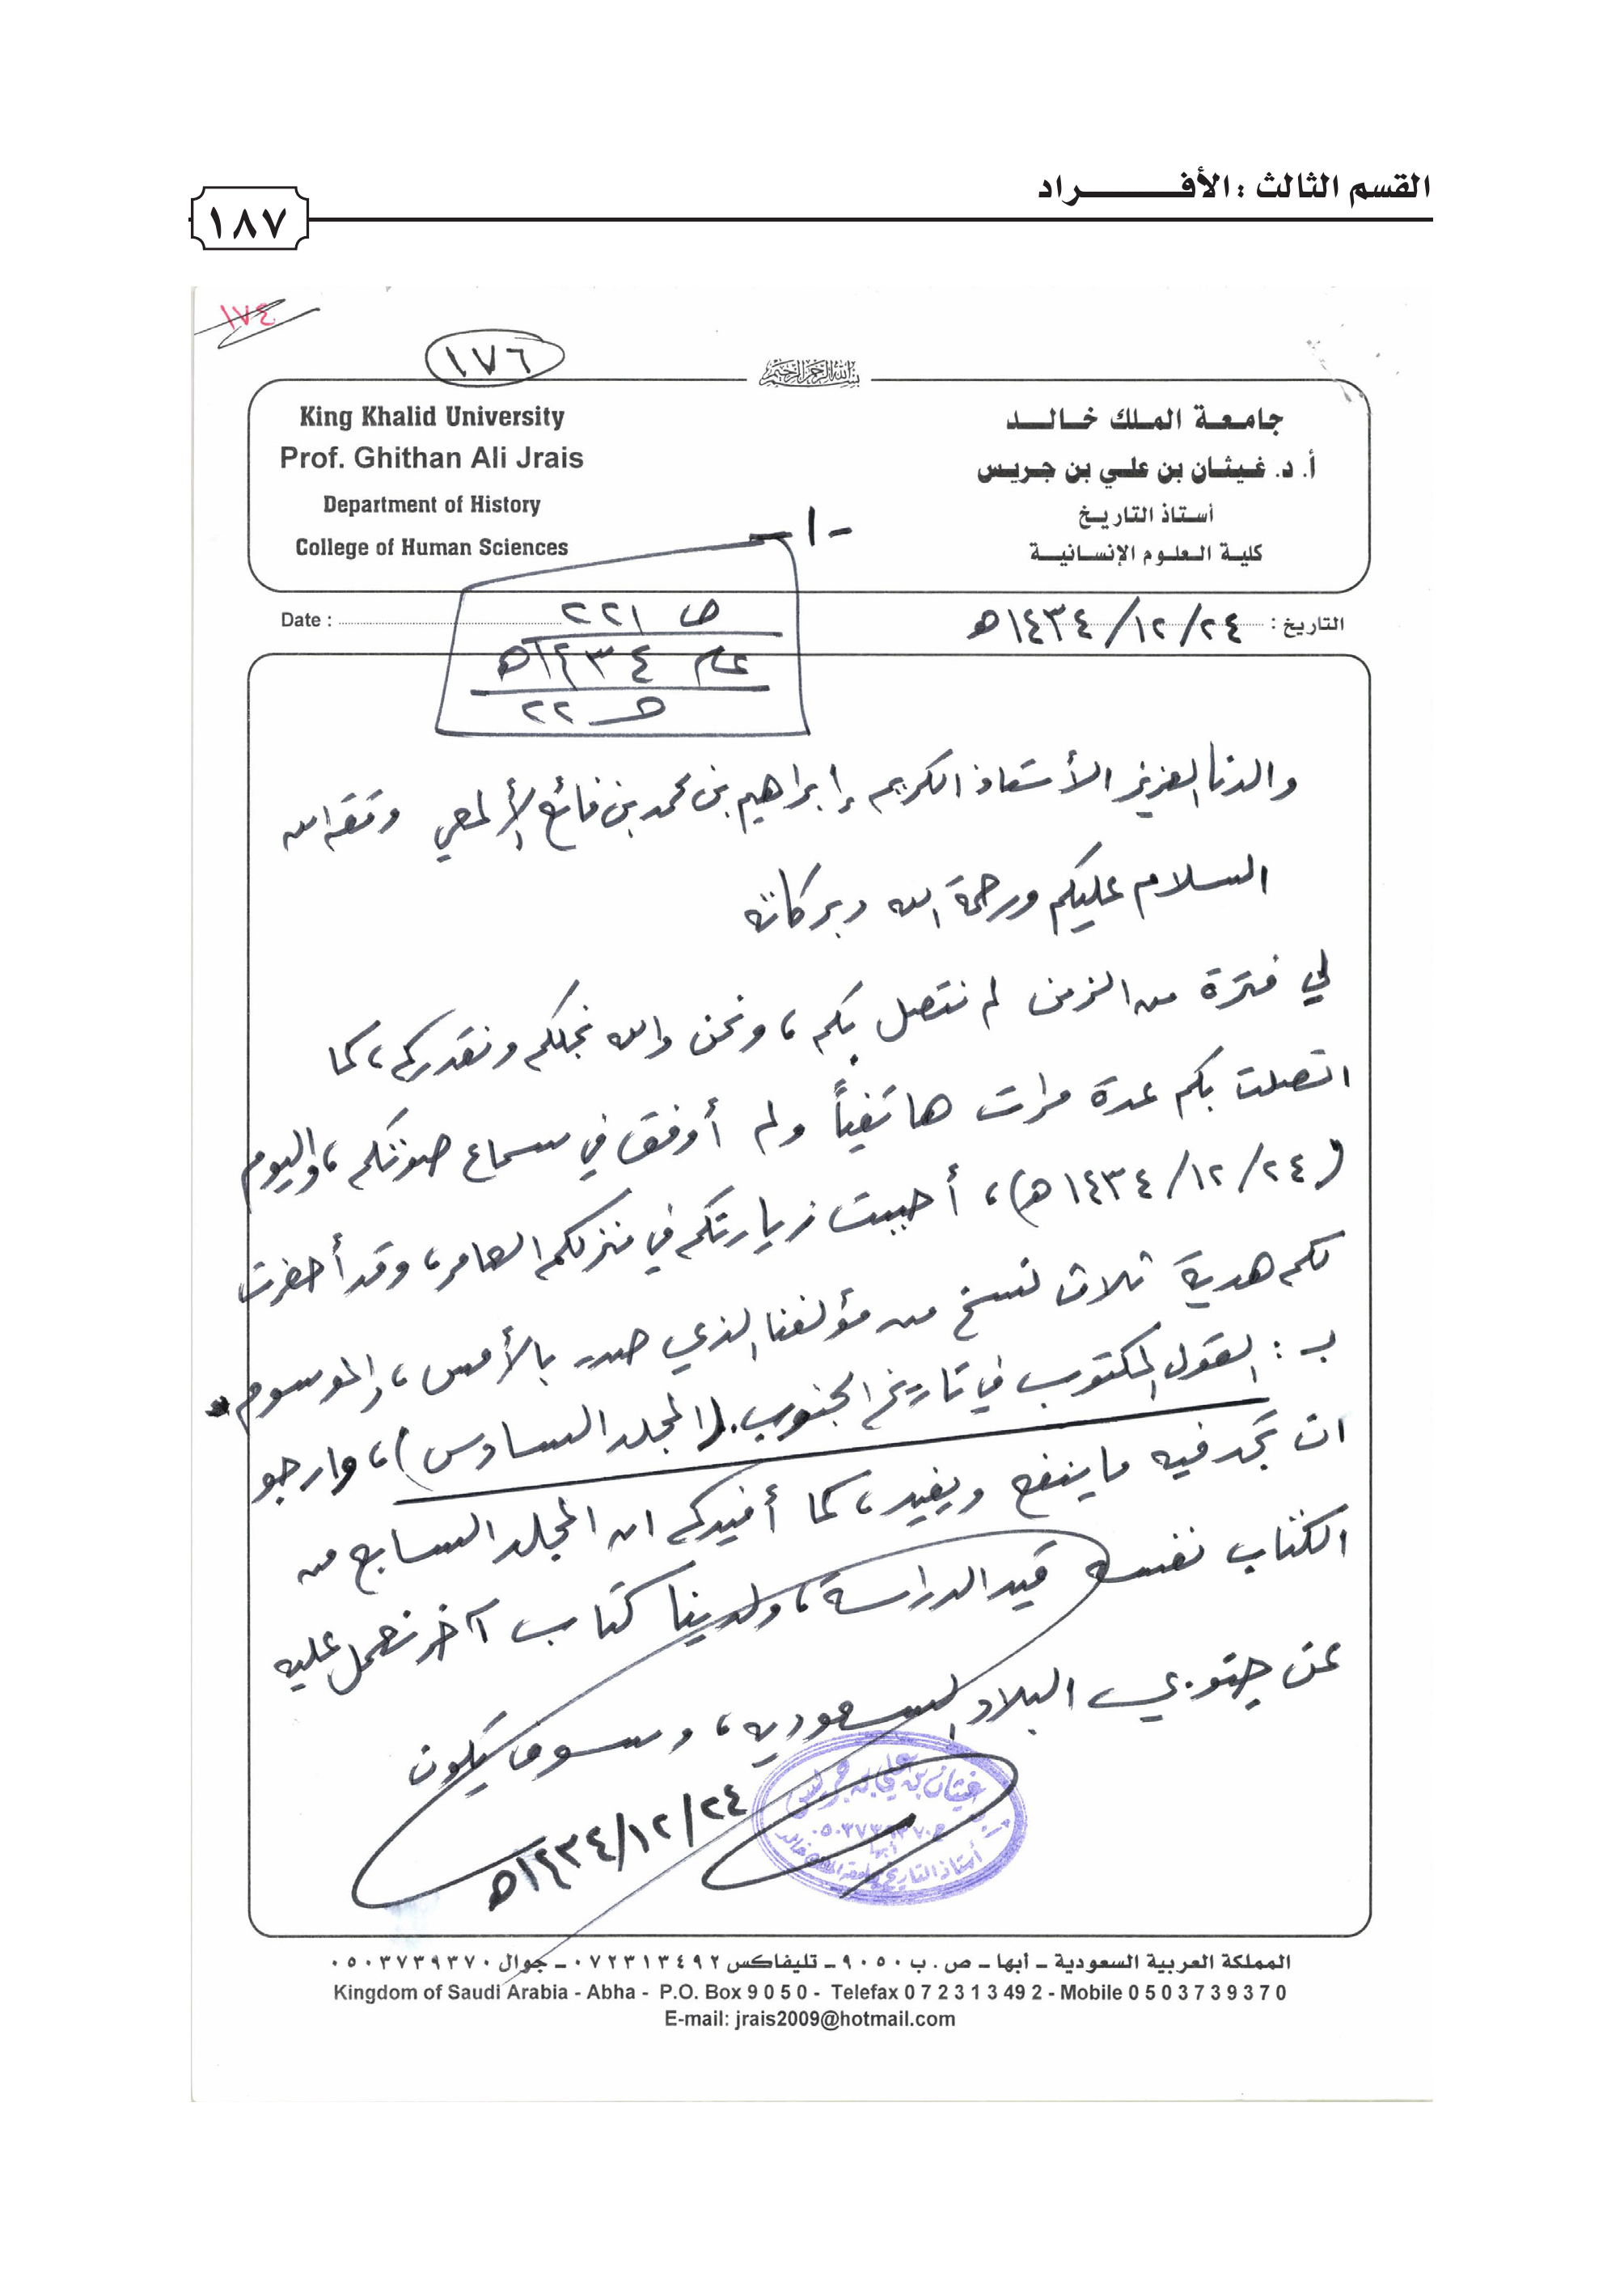 القسم الثالث : الأفـــــراد
١٨٧
١٧٤
١٧٦
بسم الله الرحمن الرحيم
King Khalid University
Prof. Ghithan Ali Jrais
Department of History
College of Human Sciences
جامعة الملك خالد
أ. د. غيثان بن علي بن جريس
أستاذ التاريخ
كلية العلوم الإنسانية
-١-
Date :
التاريخ : ٢٤/١٢/١٤٣٤هـ
ص ٢٢١
عام ١٤٣٤هـ
حـ ٢٢
والدنا العزيز الأستاذ الكريم إبراهيم بن محمد بن فائع الألمعي وفقه الله
السلام عليكم ورحمة الله وبركاته
لي فترة من الزمن لم نتصل بكم ، ونحن والله نجلكم ونقدركم ، كما
اتصلت بكم عدة مرات هاتفياً ولم أوفق في سماع صوتكم ، واليوم
(٢٤/١٢/١٤٣٤هـ) ، أحببت زيارتكم في منزلكم العامر ، وقد أحضرت
لكم هدية ثلاث نسخ من مؤلفنا الذي صدر بالأمس ، والموسوم
بـ : القول المكتوب في تاريخ الجنوب . (المجلد السادس) ، وارجو
ان تجد فيه ما ينفع ويفيد ، كما أفيدكم ان المجلد السابع من
الكتاب نفسه قيد الدراسة ، ولدينا كتاب آخر نعمل عليه
عن جنوبي البلاد السعودية ، وسوف يكون
٢٤/١٢/١٤٣٤هـ
غيثان بن علي بن جريس
٠٥٠٣٧٣٩٣٧٠
أبها
أستاذ التاريخ بجامعة الملك خالد
المملكة العربية السعودية ـ أبها ـ ص . ب ٩٠٥٠ ـ تليفاكس ٠٧٢٣١٣٤٩٢ ـ جوال ٠٥٠٣٧٣٩٣٧٠
Kingdom of Saudi Arabia - Abha - P.O. Box 9 0 5 0 - Telefax 0 7 2 3 1 3 49 2 - Mobile 0 5 0 3 7 3 9 3 7 0
E-mail: jrais2009@hotmail.com